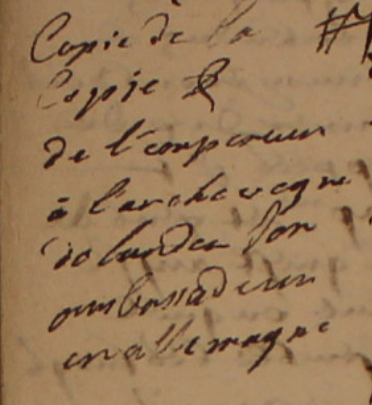 Copie de la
Copie
de l'empereur
à l'archeveque
de lunden son
ambassadeur
en allemagne